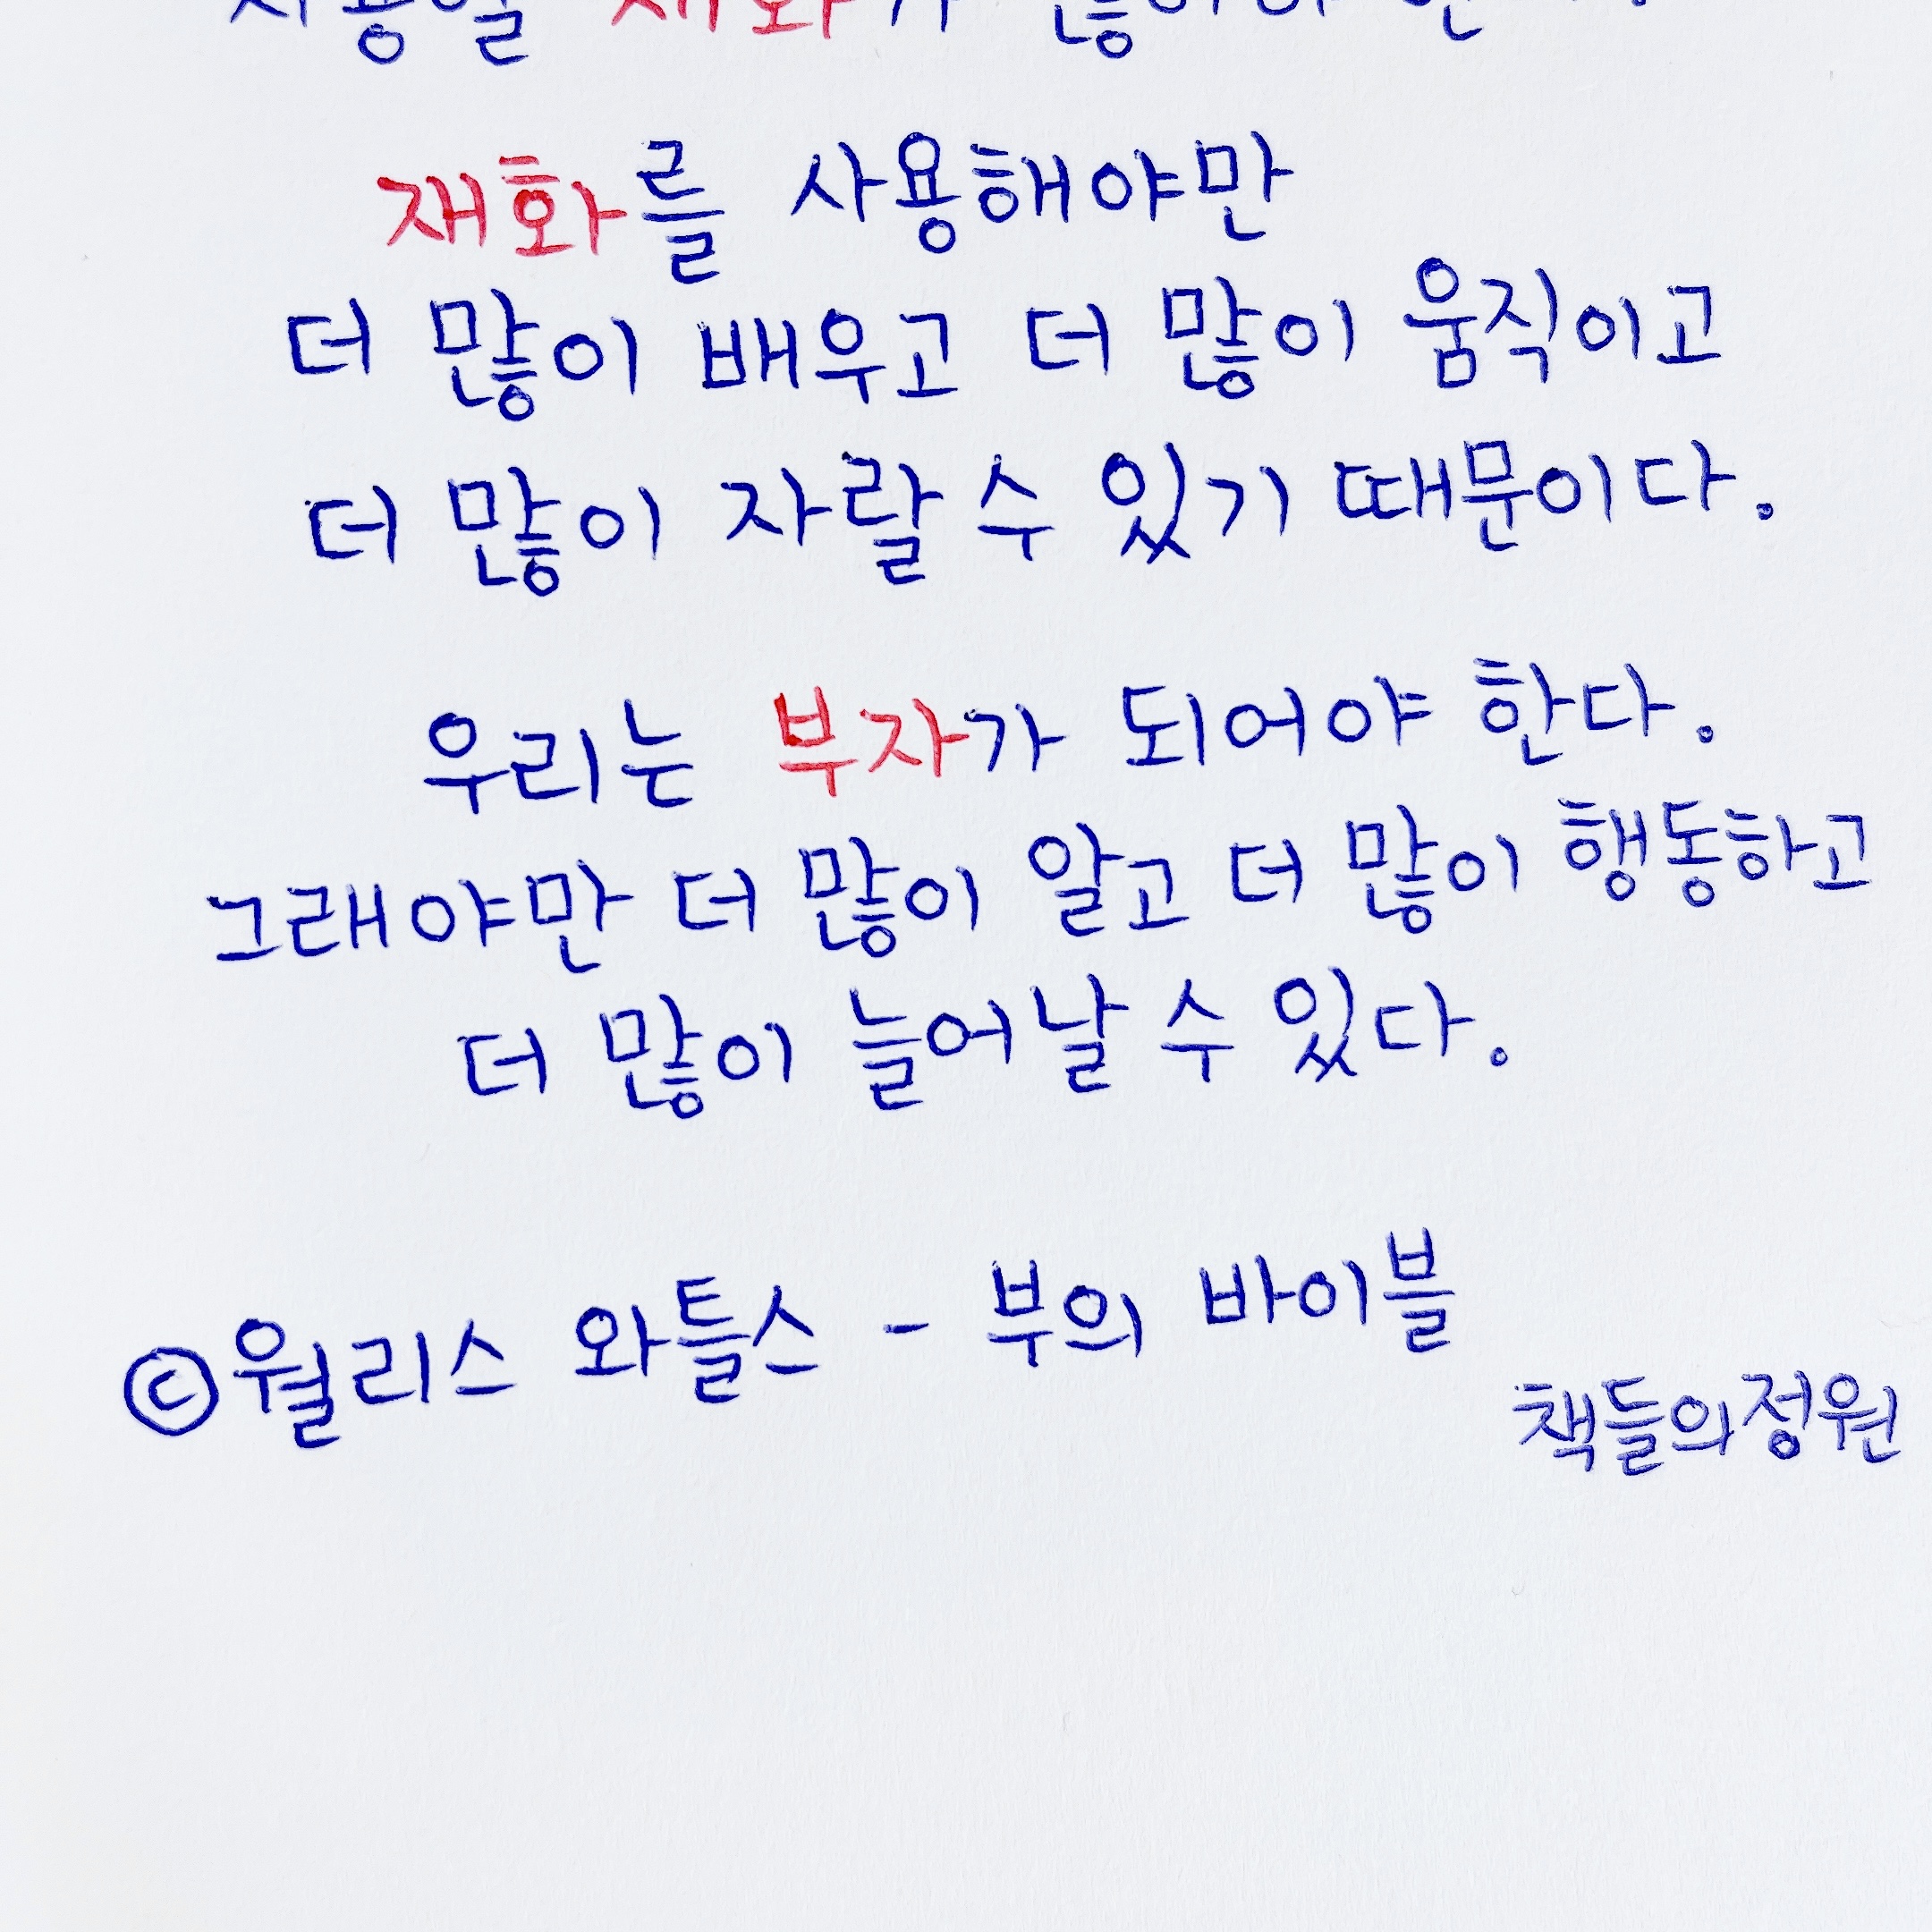 재화를 사용해야만
더 많이 배우고 더 많이 움직이고
더 많이 자랄 수 있기 때문이다.
우리는 부자가 되어야 한다.
그래야만 더 많이 알고 더 많이 행동하고
더 많이 늘어날 수 있다.
©월리스 와틀스 - 부의 바이블
책들의정원